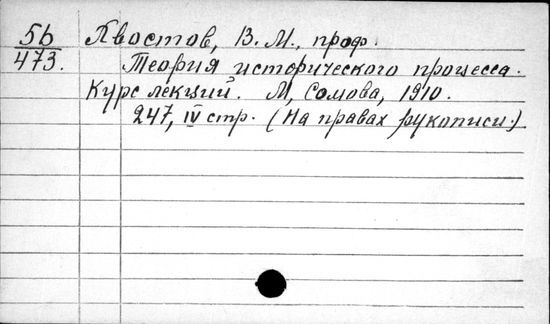 5б Хвостов, В. М., проф.
473. Теория исторического процесса.
Курс лекций. М, Сомова, 1910.
247, IV стр. (На правах рукописи.)